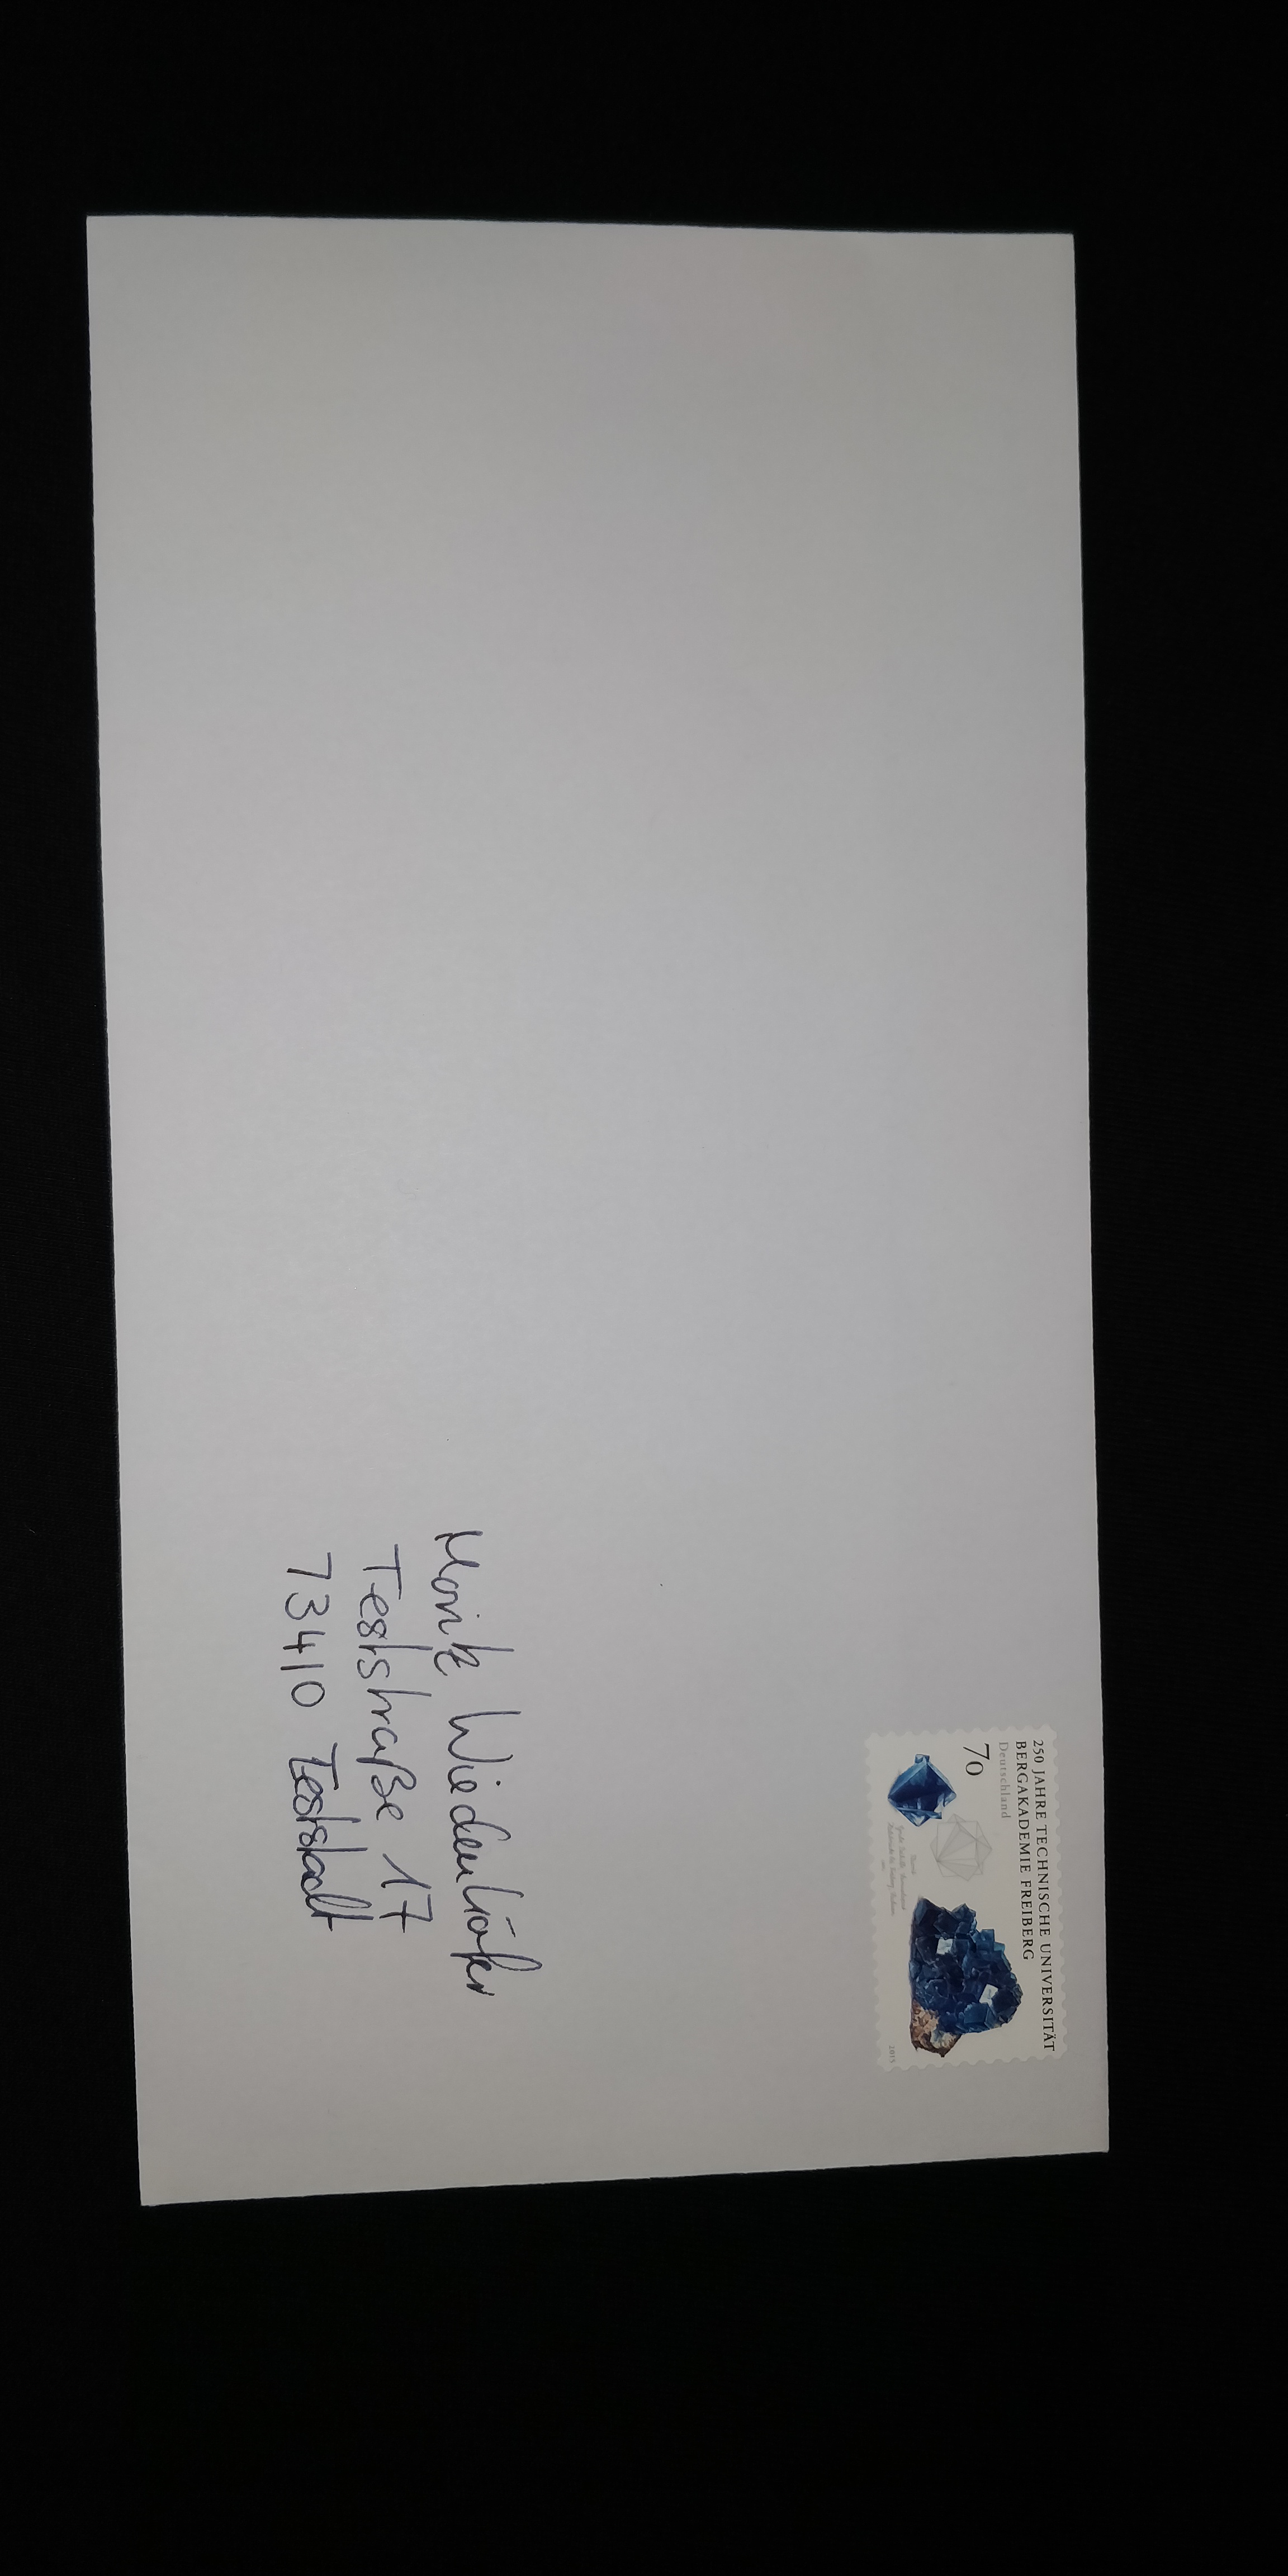 250 JAHRE TECHNISCHE UNIVERSITÄT
BERGAKADEMIE FREIBERG
Deutschland
70
2015
Moritz Wiedenhöfer
Teststraße 17
73410 Teststadt